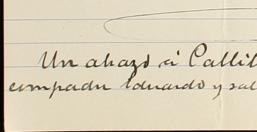 Un abazo á Callil
compadre Eduardo y sal